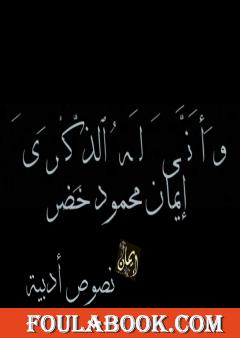 وَأَنَّىٰ لَهُ ٱلذِّكْرَىٰ
إيمان محمود خضر
إيمان
نصوص أدبية
FOULABOOK.COM